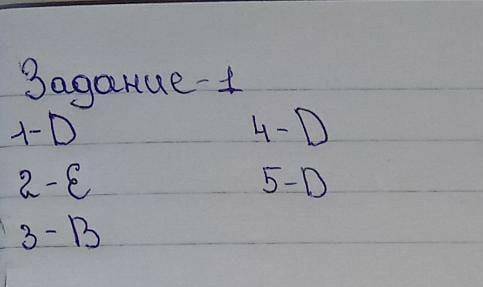 Задание-1
1-D 4-D
2-E 5-D
3-B